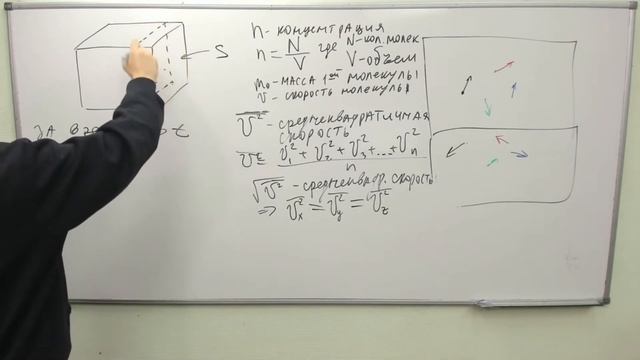 S
за t
n - концентрация
n = N/V где N - кол. молек
V - объем
m₀ - масса 1ой молекулы
v - скорость молекулы
v̅² - среднеквадратичная
скорость
v₁² + v₂² + v₃² + ... + vₙ²
n
√v̅² - скорость
⇒ v̅ₓ² = v̅ᵧ² = v̅_z²